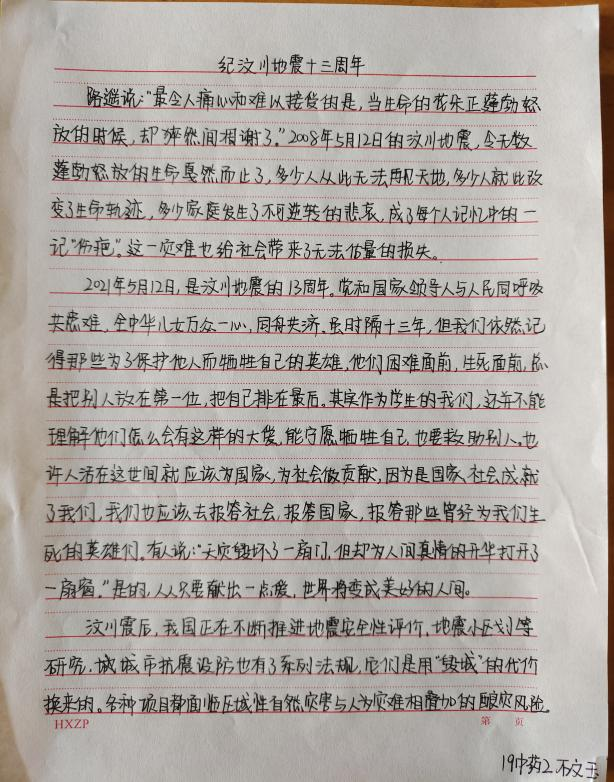 纪汶川地震十三周年
路遥说:"最令人痛心和难以接受的是,当生命的花朵正蓬勃怒
放的时候,却猝然间相谢了。"2008年5月12日的汶川地震,令无数
蓬勃怒放的生命戛然而止了,多少人从此无法再见天地,多少人就此改
变了生命轨迹,多少家庭发生了不可逆转的悲哀,成了每个人记忆中的一
记"伤疤"。这一灾难也给社会带来了无法估量的损失。
2021年5月12日,是汶川地震的13周年。党和国家领导人与人民同呼吸
共患难,全中华儿女万众一心,同舟共济。虽时隔十三年,但我们依然记
得那些为了保护他人而牺牲自己的英雄,他们困难面前,生死面前,总
是把别人放在第一位,把自己排在最后。其实作为学生的我们,还并不能
理解他们怎么会有这样的大爱,能宁愿牺牲自己,也要救助别人。也
许人活在这世间就应该为国家,为社会做贡献,因为是国家、社会成就
了我们,我们也应该去报答社会,报答国家,报答那些曾经为我们生
死的英雄们。有人说:"天灾毁坏了一扇门,但却为人间真情的升华打开了
一扇窗。"是的,人人只要献出一点爱,世界将变成美好的人间。
汶川震后,我国正在不断推进地震安全性评价、地震小区划等
研究,城市抗震设防也有了系列法规,它们是用"毁城"的代价
换来的。各种项目都面临区域性自然灾害与人为灾难相叠加的灾风险。
HXZP
第 页
19中药2